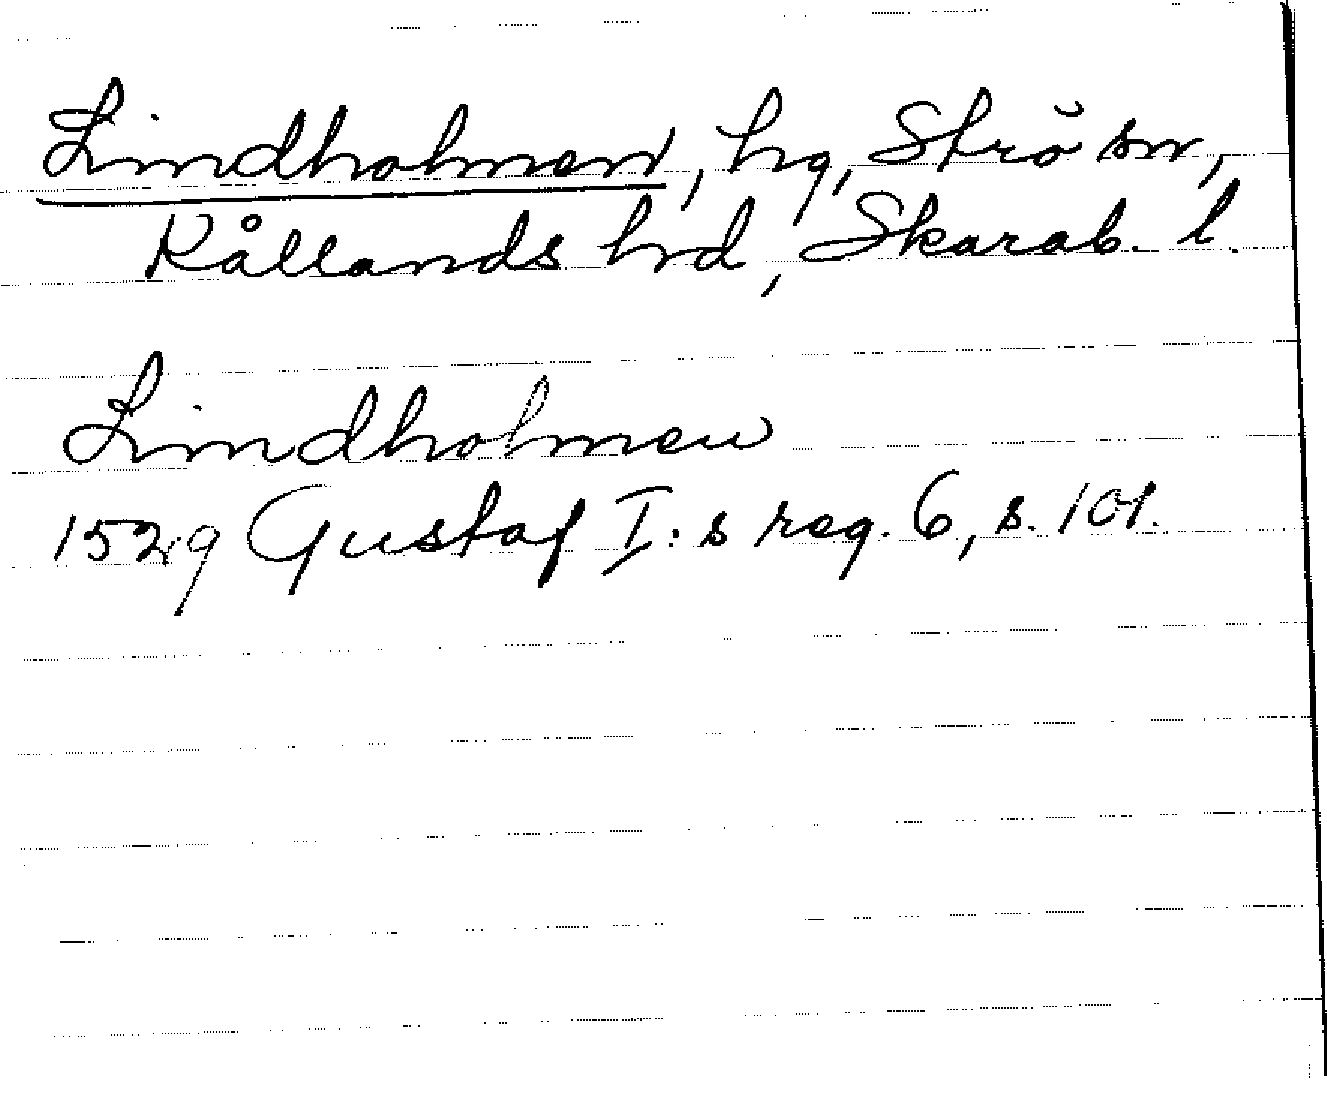 Lindholmen, hg, Strö sn,
Kållands hd, Skarab. l.
Lindholmen
1529 Gustaf I:s reg. 6, s. 101.